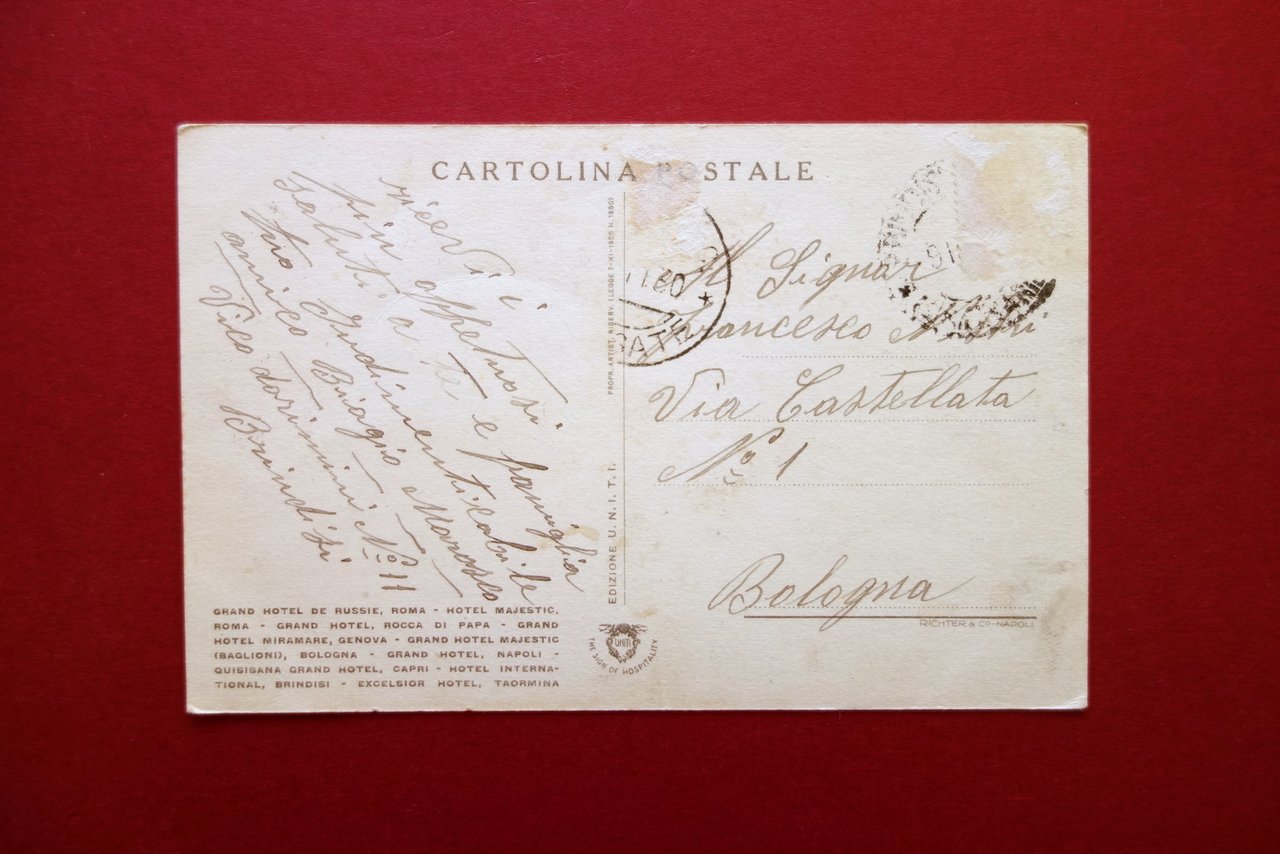 CARTOLINA POSTALE
ricevi i
più affetuosi
Saluti a Te e famiglia
tuo Indimenticabile
amico Biagio Marasco
Vico dorimini No 11
Brindisi
PROPR. ARTIST. RISERV. (LEGGE 7-XI-1925 N. 1950)
EDIZIONE U. N. I. T. I.
Il Signor
Francesco
Via Castellata
No 1
Bologna
RICHTER & Co - NAPOLI
GRAND HOTEL DE RUSSIE, ROMA - HOTEL MAJESTIC,
ROMA - GRAND HOTEL, ROCCA DI PAPA - GRAND
HOTEL MIRAMARE, GENOVA - GRAND HOTEL MAJESTIC
(BAGLIONI), BOLOGNA - GRAND HOTEL, NAPOLI -
QUISISANA GRAND HOTEL, CAPRI - HOTEL INTERNA-
TIONAL, BRINDISI - EXCELSIOR HOTEL, TAORMINA
UNITI
THE SIGN OF HOSPITALITY